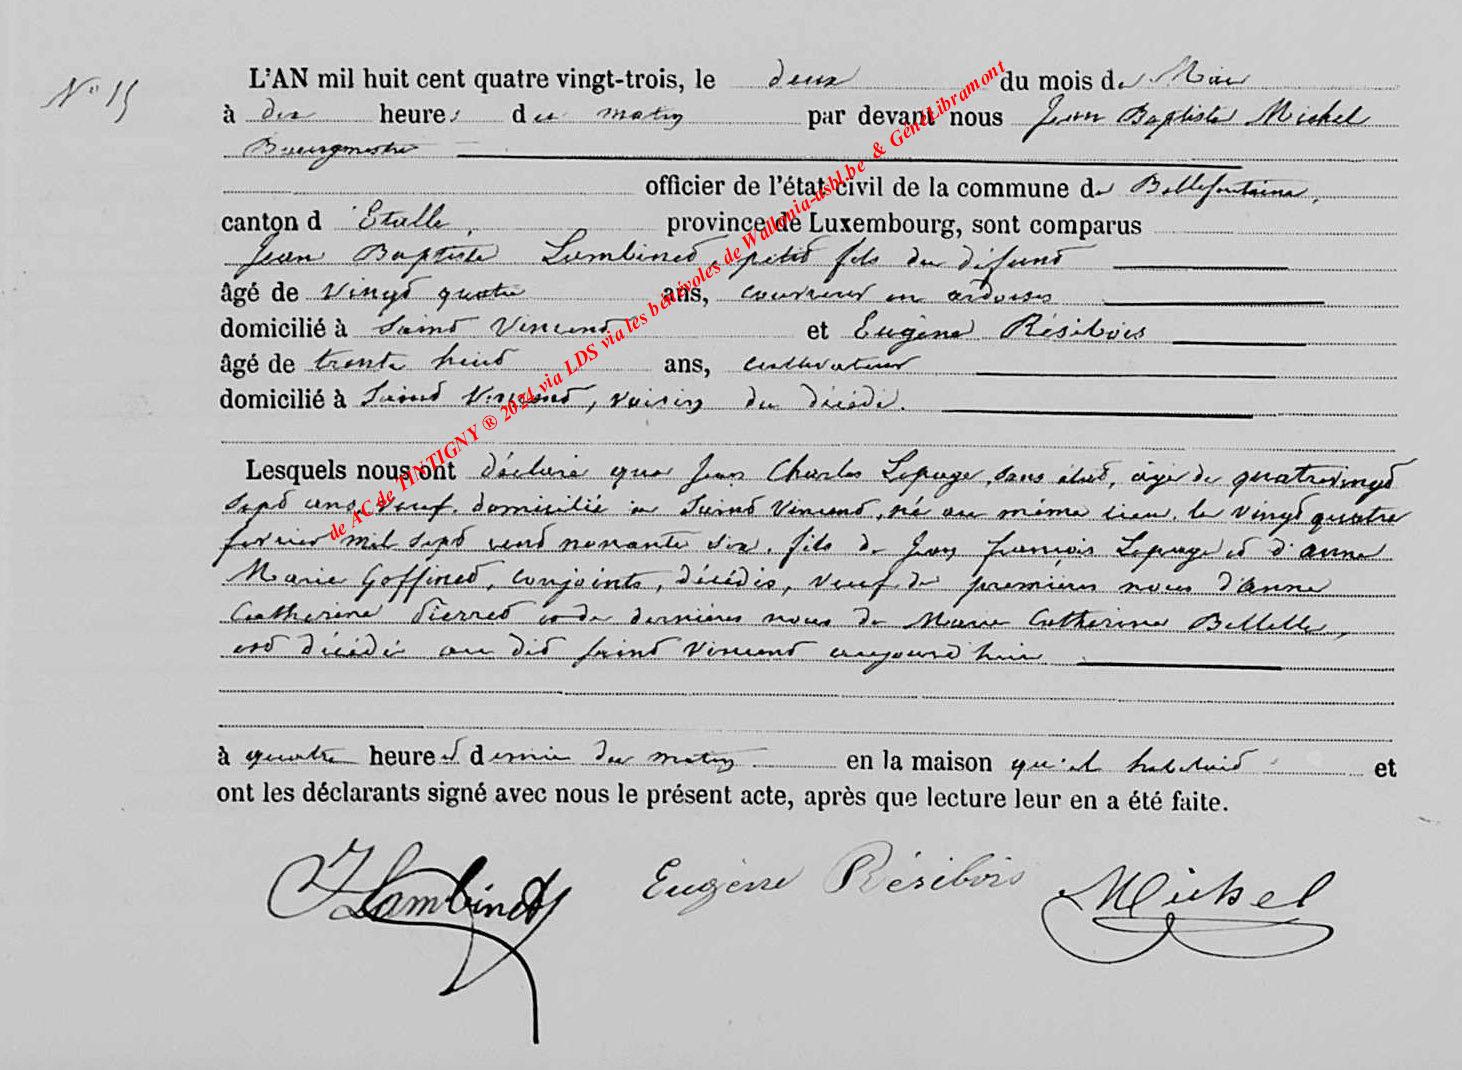 N° 15
L'AN mil huit cent quatre vingt-trois, le deux du mois de Mai
à dix heures du matin par devant nous Jean Baptiste Michel
Bourgmestre
officier de l'état civil de la commune de Bellefontaine,
canton d'Etalle, province de Luxembourg, sont comparus
Jean Baptiste Lambinet, petit fils du défunt
âgé de vingt quatre ans, couvreur en ardoises
domicilié à Saint Vincent et Eugène Résibois
âgé de trente huit ans, cultivateur
domicilié à Saint Vincent, voisin du décédé.
Lesquels nous ont déclaré que Jean Charles Lepage, sans état, âgé de quatrevingt
sept ans, veuf, domicilié à Saint Vincent, né au même lieu, le vingt quatre
février mil sept cent nonante six, fils de Jean françois Lepage et d'anne
Marie Goffinet, conjoints, décédés, veuf de premières noces d'Anne
Catherine Pierret et de dernières noces de Marie Catherine Bellelle,
est décédé au dit saint Vincent aujourd'hui
à quatre heures et demie du matin en la maison qu'il habitait et
ont les déclarants signé avec nous le présent acte, après que lecture leur en a été faite.
JLambinet Eugène Résibois Michel
de AC de TINTIGNY ® 2024 via LDS via les bénévoles de Wallonia-asbl.be & GénéLibramont